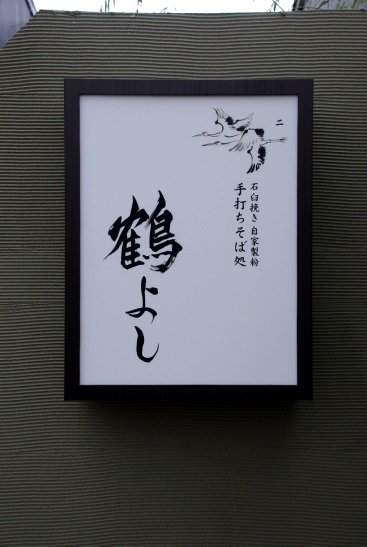 二
石臼挽き 自家製粉
手打ちそば処
鶴よし